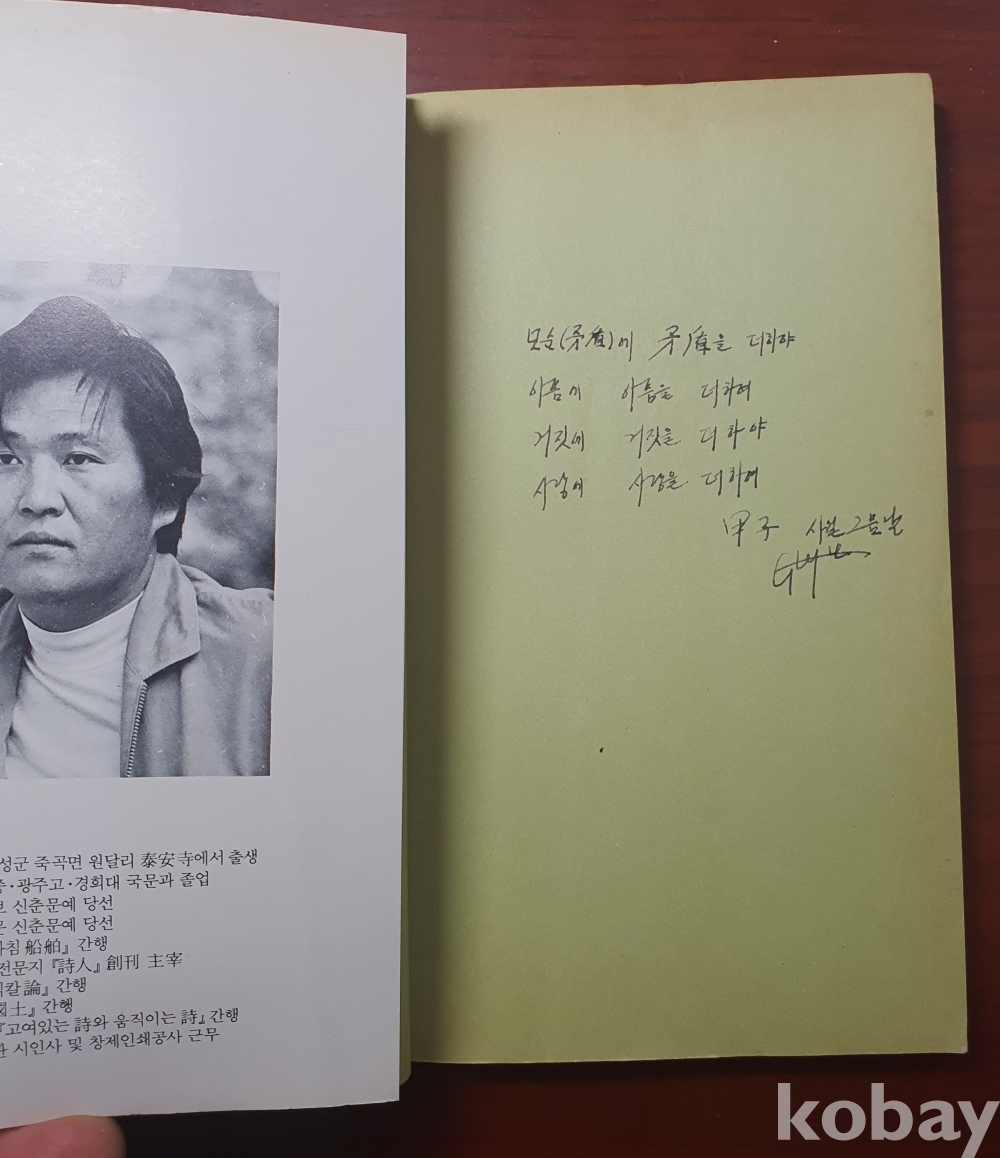 성군 죽곡면 원달리 泰安寺에서 출생
중·광주고·경희대 국문과 졸업
신춘문예 당선
신춘문예 당선
아침 船舶』 간행
전문지 『詩人』 創刊 主宰
식칼論』 간행
國土』 간행
『고여있는 詩와 움직이는 詩』 간행
시인사 및 창제인쇄공사 근무
모순(矛盾)에 矛盾을 더하야
아픔에 아픔을 더하여
거짓에 거짓을 더하야
사랑에 사랑을 더하여
甲子 사월 그믐날
kobay